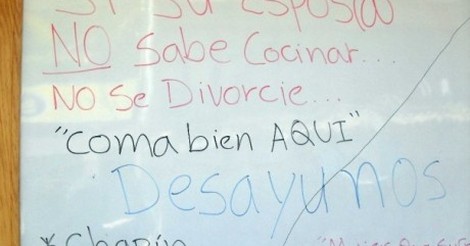 Si su Espos(a)
NO Sabe Cocinar...
NO Se Divorcie...
"Coma bien AQUI"
Desayunos
*Chapín